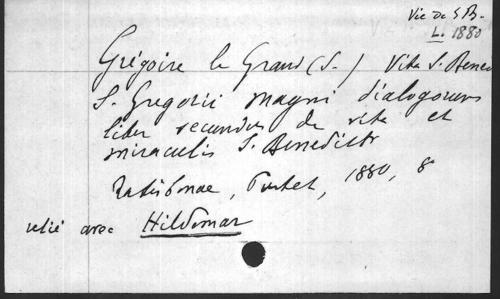 Vie de S B.
L. 1880
Grégoire le Grand (S.) Vita S. Bened
S. Gregorii magni dialogorum
liber secundus de vita et
miraculis S. Benedicti
Ratisbonae, Pustet, 1880, 8
relié avec Hildemar